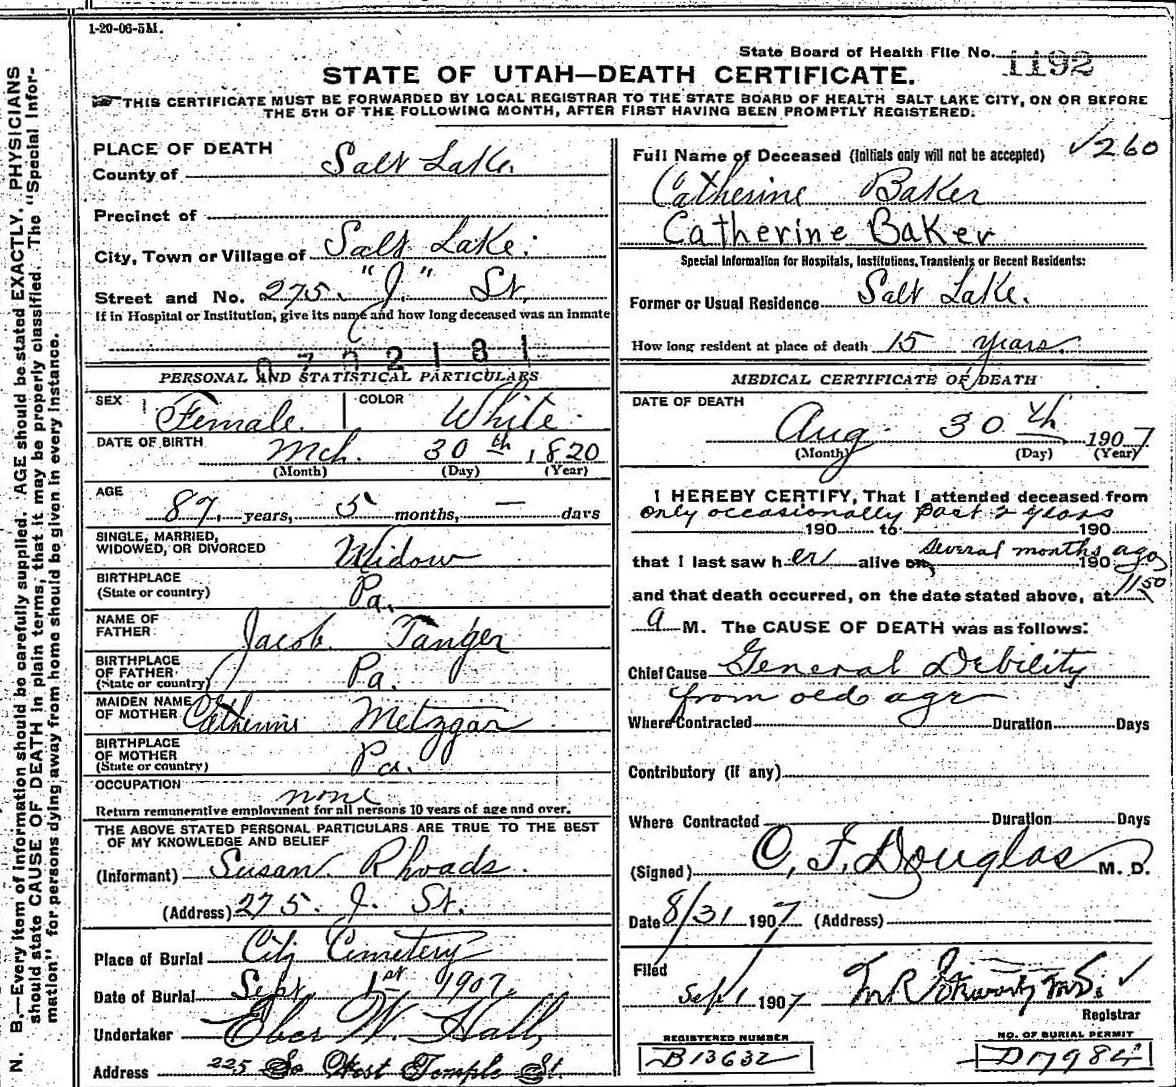 1-20-06-5M.
State Board of Health File No. 1192
STATE OF UTAH—DEATH CERTIFICATE.
THIS CERTIFICATE MUST BE FORWARDED BY LOCAL REGISTRAR TO THE STATE BOARD OF HEALTH SALT LAKE CITY, ON OR BEFORE
THE 5TH OF THE FOLLOWING MONTH, AFTER FIRST HAVING BEEN PROMPTLY REGISTERED.
N. B.—Every item of information should be carefully supplied. AGE should be stated EXACTLY. PHYSICIANS
should state CAUSE OF DEATH in plain terms, that it may be properly classified. The "Special Infor-
mation" for persons dying away from home should be given in every instance.
PLACE OF DEATH
County of Salt Lake.
Precinct of
City, Town or Village of Salt Lake.
Street and No. 275. "J." St.
If in Hospital or Institution, give its name and how long deceased was an inmate
2181
PERSONAL AND STATISTICAL PARTICULARS
SEX Female. COLOR White.
DATE OF BIRTH Mch. 30th, 1820
(Month) (Day) (Year)
AGE
87, years, 5 months, — days
SINGLE, MARRIED,
WIDOWED, OR DIVORCED Widow
BIRTHPLACE
(State or country) Pa.
NAME OF
FATHER Jacob Tanger
BIRTHPLACE
OF FATHER
(State or country) Pa.
MAIDEN NAME
OF MOTHER Catherine Metzgar
BIRTHPLACE
OF MOTHER
(State or country) Pa.
OCCUPATION none
Return remunerative employment for all persons 10 years of age and over.
THE ABOVE STATED PERSONAL PARTICULARS ARE TRUE TO THE BEST
OF MY KNOWLEDGE AND BELIEF
(Informant) Susan Rhoads.
(Address) 275. J. St.
Place of Burial City Cemetery
Date of Burial Sept 1st 1907.
Undertaker Eber W. Hall
Address 225 So West Temple St.
Full Name of Deceased (Initials only will not be accepted) √260
Catherine Baker
Catherine Baker
Special Information for Hospitals, Institutions, Transients or Recent Residents:
Former or Usual Residence Salt Lake.
How long resident at place of death 15 years.
MEDICAL CERTIFICATE OF DEATH
DATE OF DEATH
Aug 30th 1907
(Month) (Day) (Year)
I HEREBY CERTIFY, That I attended deceased from
only occasionally past 2 years
190 to 190
that I last saw her alive on several months ago 190
and that death occurred, on the date stated above, at 1150
a M. The CAUSE OF DEATH was as follows:
Chief Cause General Debility
from old age
Where Contracted Duration Days
Contributory (if any)
Where Contracted Duration Days
(Signed) O. F. Douglas M. D.
Date 8/31 1907 (Address)
Filed
Sep 1 1907 M.D.
Registrar
REGISTERED NUMBER
B13632
NO. OF BURIAL PERMIT
D17984